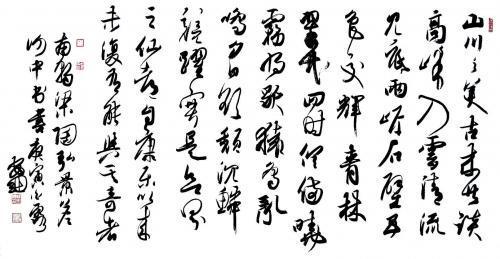 山川之美古來共談
高峰入雲清流
見底兩岸石壁五
色交輝青林
翠竹四時俱備曉
霧將歇猿鳥亂
鳴夕日欲頹沉鱗
競躍實是欲界
之仙都自康樂以來
未復有能與其奇者
南朝梁陶弘景答
謝中書書庚寅